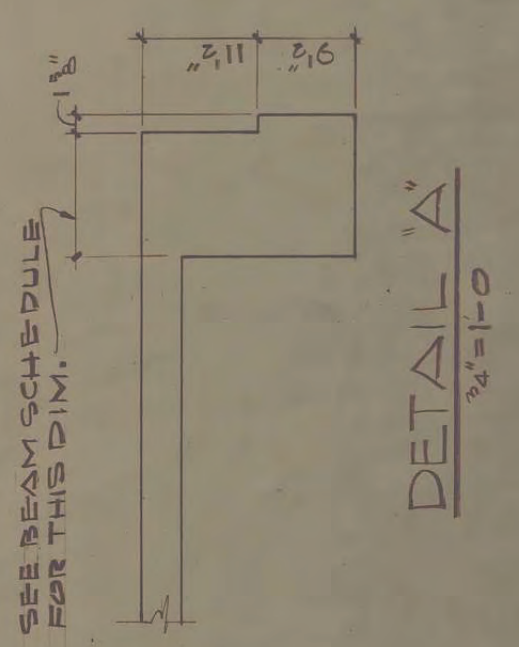 SEE BEAM SCHEDULE
FOR THIS DIM.
1⅜"
11½"
9½"
DETAIL "A"
¾"=1'-0